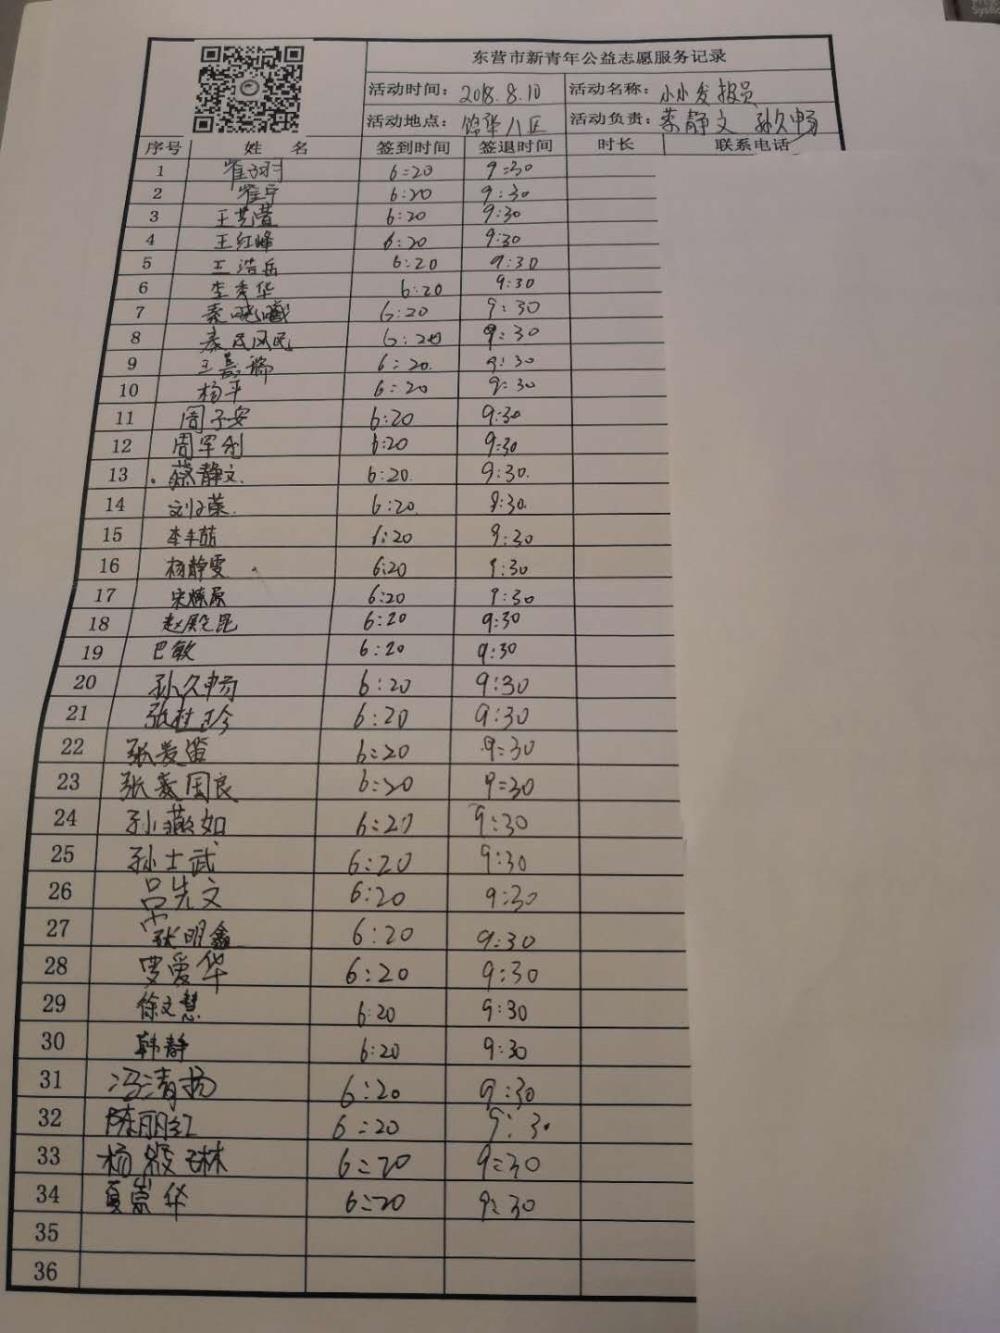 东营市新青年公益志愿服务记录
活动时间: 2018.8.10 活动名称: 小小发报员
活动地点: 八区 活动负责: 蔡静文 孙久畅
序号 姓 名 签到时间 签退时间 时长 联系电话
1 6:20 9:30
2 6:20 9:30
3 王艺萱 6:20 9:30
4 王红峰 6:20 9:30
5 王浩岳 6:20 9:30
6 李秀华 6:20 9:30
7 秦晓曦 6:20 9:30
8 秦 民 6:20 9:30
9 王嘉 6:20 9:30
10 杨平 6:20 9:30
11 周子安 6:20 9:30
12 周军利 6:20 9:30
13 蔡静文 6:20 9:30
14 刘 荣 6:20 9:30
15 李 茹 6:20 9:30
16 杨静雯 6:20 9:30
17 宋 原 6:20 9:30
18 赵 昆 6:20 9:30
19 巴敏 6:20 9:30
20 孙久畅 6:20 9:30
21 张桂珍 6:20 9:30
22 张 6:20 9:30
23 张 国良 6:20 9:30
24 孙燕如 6:20 9:30
25 孙士武 6:20 9:30
26 吕先文 6:20 9:30
27 张明鑫 6:20 9:30
28 罗爱华 6:20 9:30
29 徐文慧 6:20 9:30
30 韩静 6:20 9:30
31 冯清扬 6:20 9:30
32 陈丽红 6:20 9:30
33 杨 琳 6:20 9:30
34 夏崇华 6:20 9:30
35
36